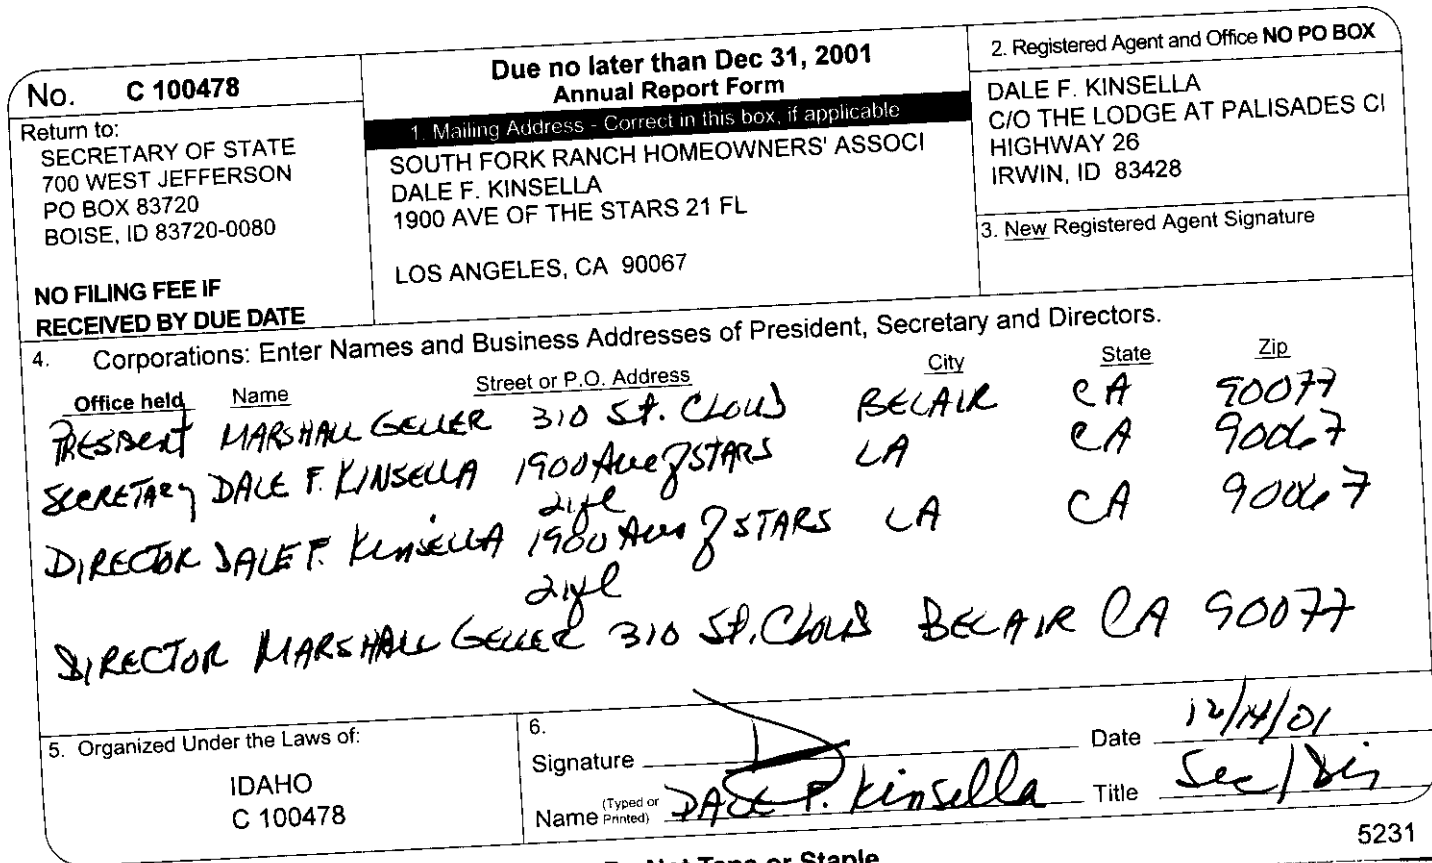 No. C 100478
Return to:
SECRETARY OF STATE
700 WEST JEFFERSON
PO BOX 83720
BOISE, ID 83720-0080
NO FILING FEE IF
RECEIVED BY DUE DATE
Due no later than Dec 31, 2001
Annual Report Form
1. Mailing Address - Correct in this box, if applicable
SOUTH FORK RANCH HOMEOWNERS' ASSOCI
DALE F. KINSELLA
1900 AVE OF THE STARS 21 FL
LOS ANGELES, CA 90067
2. Registered Agent and Office NO PO BOX
DALE F. KINSELLA
C/O THE LODGE AT PALISADES CI
HIGHWAY 26
IRWIN, ID 83428
3. New Registered Agent Signature
4. Corporations: Enter Names and Business Addresses of President, Secretary and Directors.
Office held Name Street or P.O. Address City State Zip
PRESIDENT MARSHALL GELLER 310 St. CLOUD BELAIR CA 90077
SECRETARY DALE F. KINSELLA 1900 Ave of STARS LA CA 90067
21 fl
DIRECTOR DALE F. KINSELLA 1900 Ave of STARS LA CA 90067
21 fl
DIRECTOR MARSHALL GELLER 310 St. CLOUD BELAIR CA 90077
5. Organized Under the Laws of:
IDAHO
C 100478
6.
Signature Date 12/14/01
Name (Typed or Printed) DALE F. Kinsella Title Sec/Dir
5231
Do Not Tape or Staple